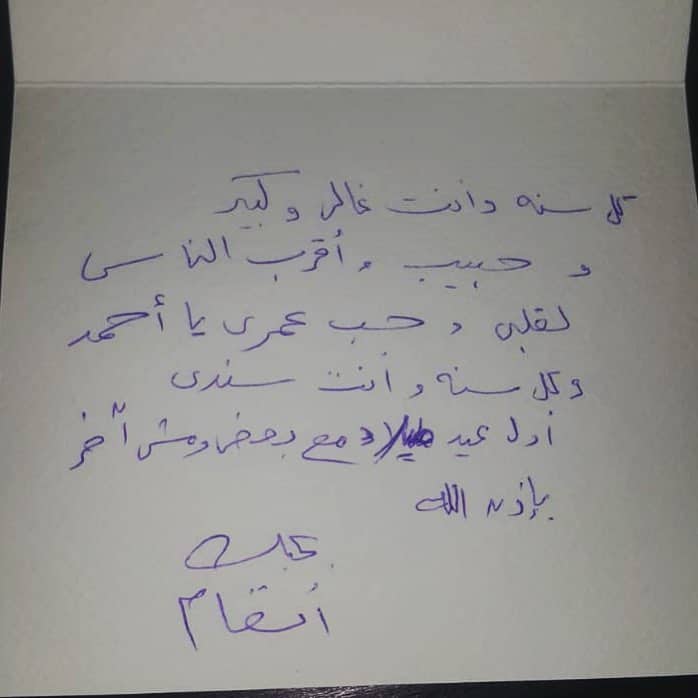 كل سنه وانت غالى وكبير
و حبيب و أقرب الناس
لقلبى و حب عمرى يا أحمد
وكل سنه وأنت سندى
أول عيد ميلاد مع بعض ومش آخر
بإذن الله
بحبك